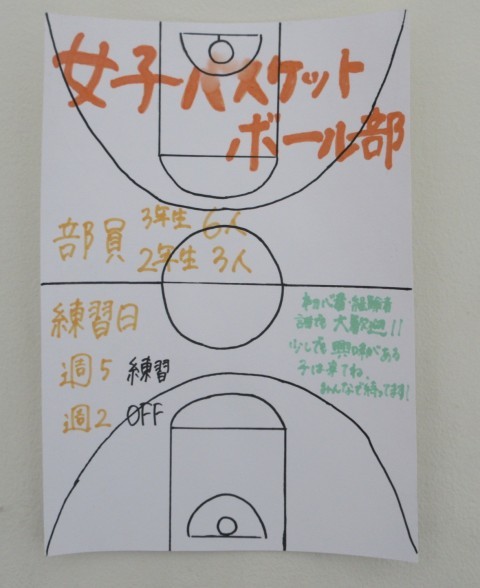 女子バスケット
ボール部
部員 3年生 6人
2年生 3人
練習日
週5 練習
週2 OFF
初心者・経験者
誰でも 大歓迎!!
少しでも興味がある
子は来てね、
みんなで待ってます!